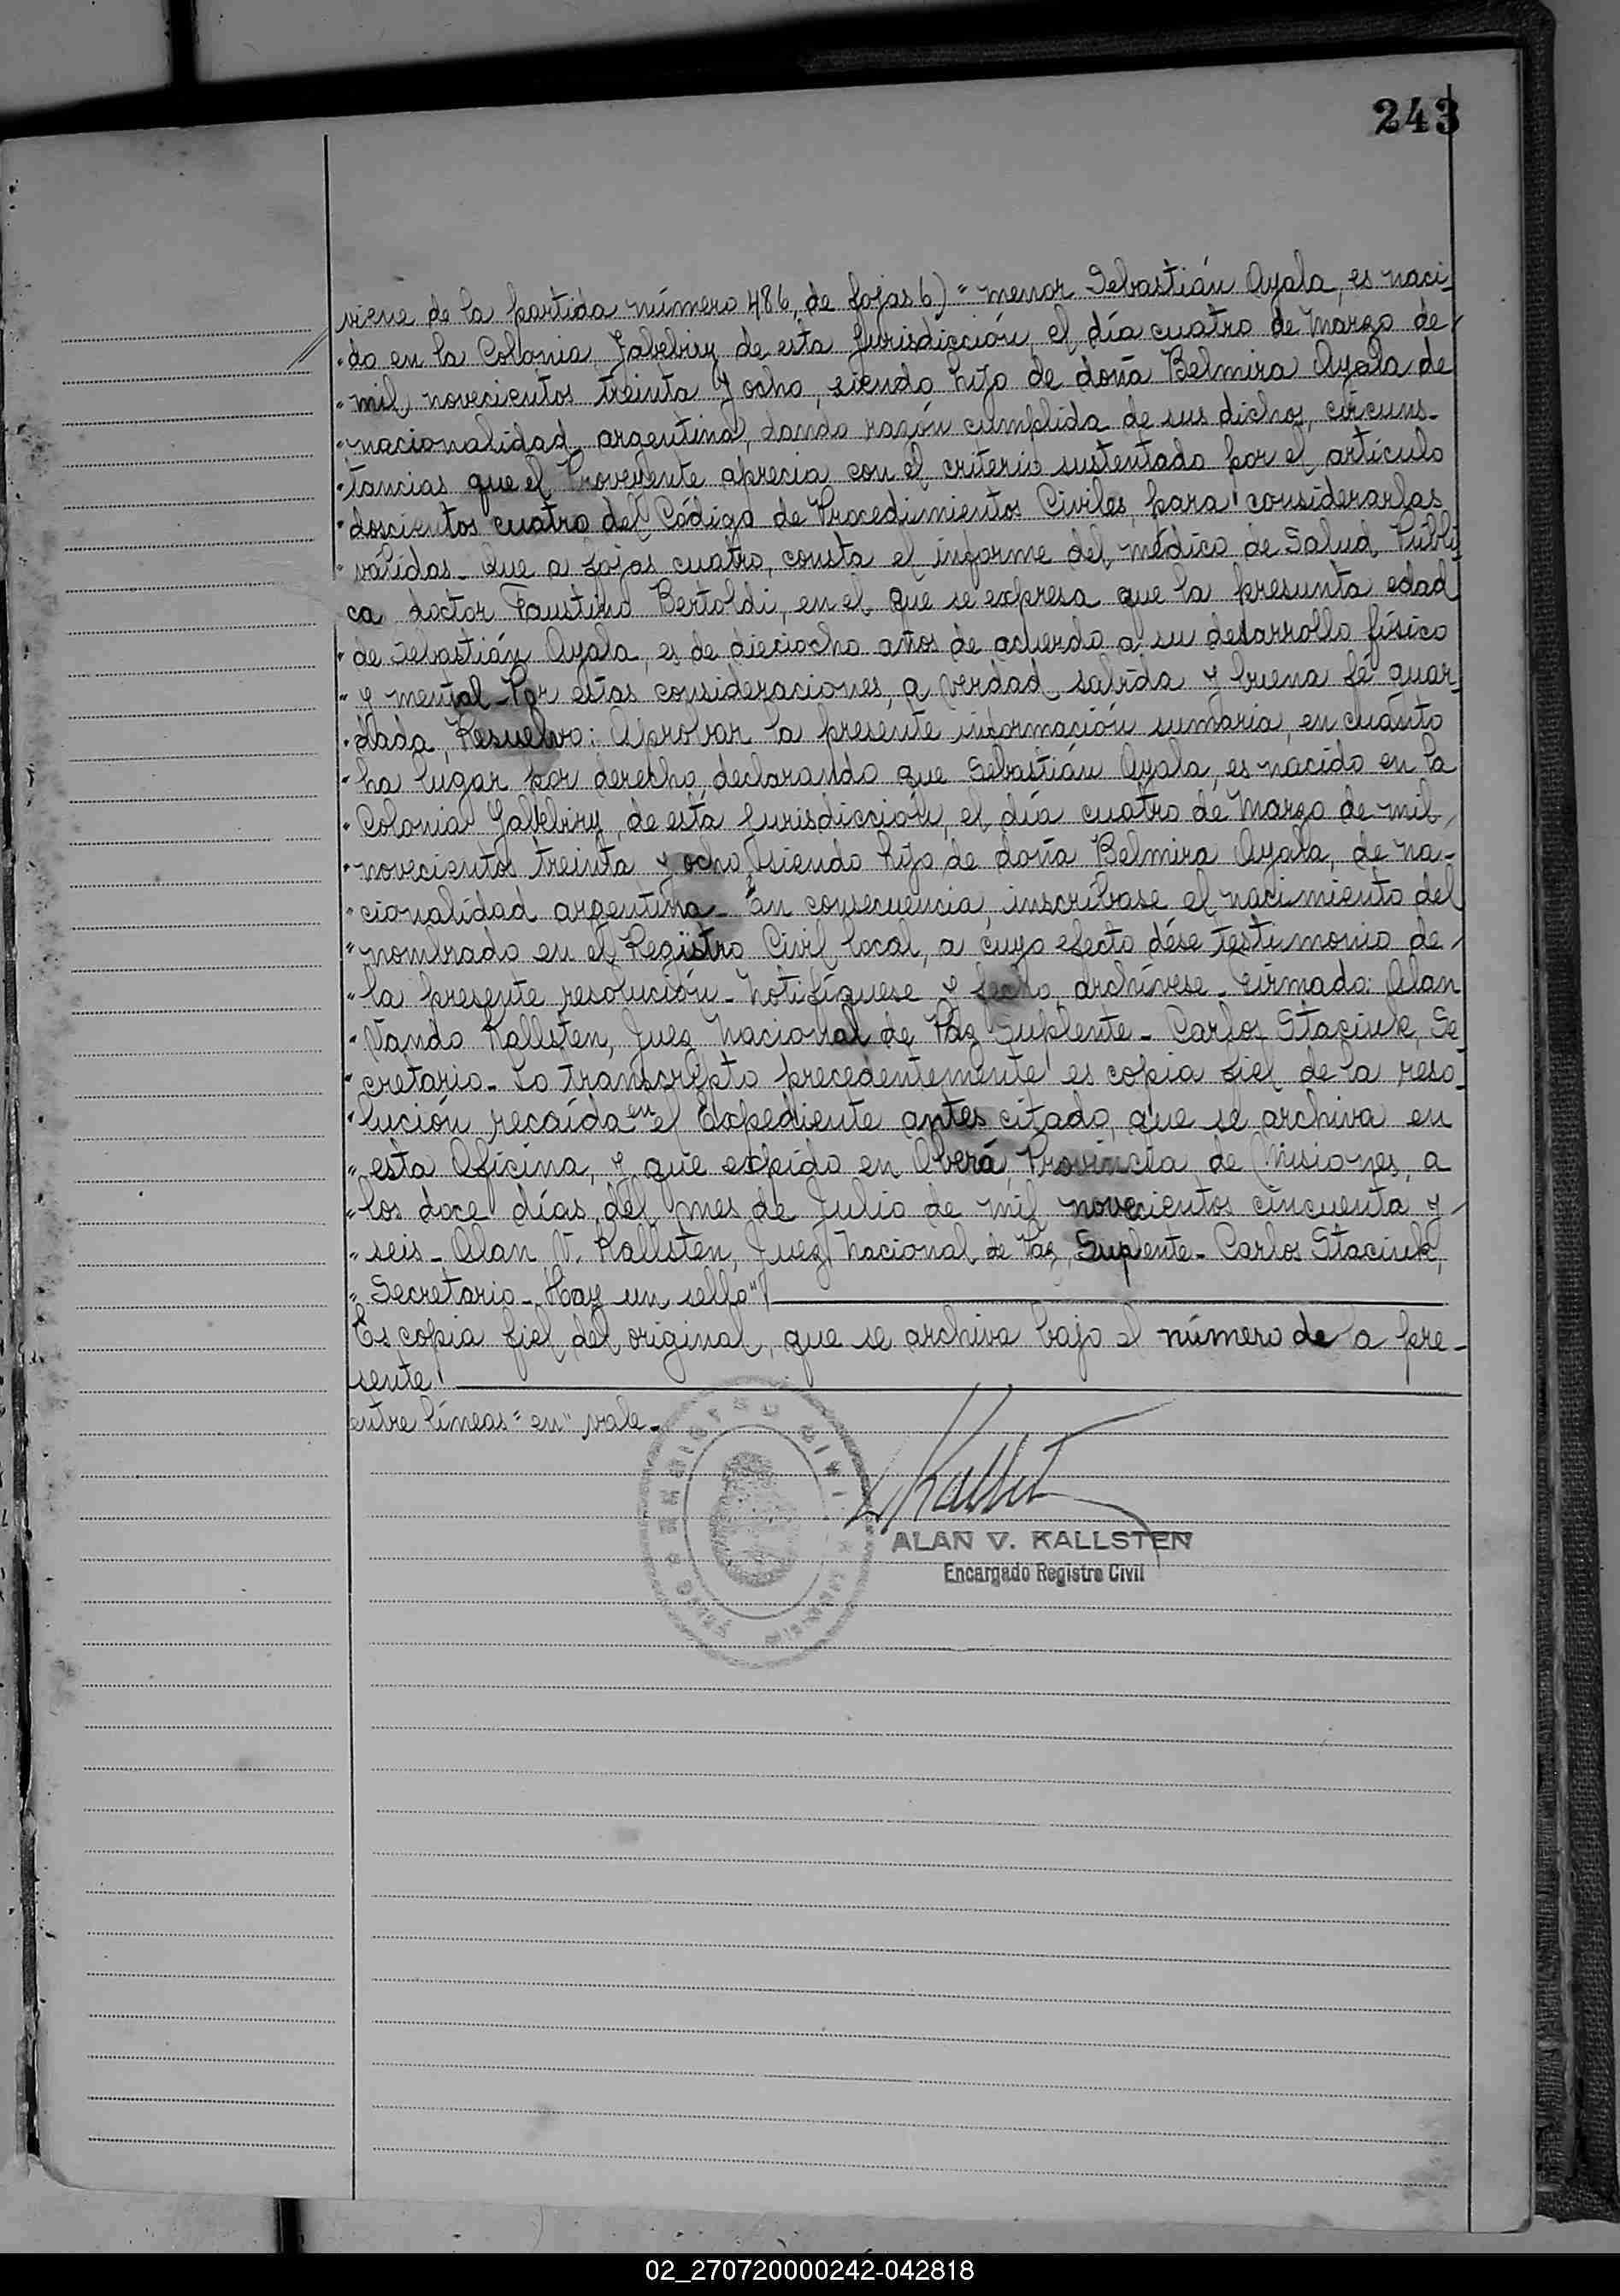 243
viene de la partida número 486, de fojas 6) " menor Sebastián Ayala, es naci-
" do en la Colonia Yabebiry de esta Jurisdicción, el día cuatro de Marzo de
" mil novecientos treinta y ocho, siendo hijo de doña Belmira Ayala de
" nacionalidad argentina, dando razón cumplida de sus dichos, circuns-
" tancias que el Proveyente aprecia con el criterio sustentado por el artículo
" doscientos cuatro del Código de Procedimientos Civiles, para considerarlas
" válidas_ Que a fojas cuatro, consta el informe del médico de Salud Públi-
ca doctor Faustino Bertoldi, en el que se expresa que la presunta edad
" de Sebastián Ayala, es de dieciocho años de acuerdo a su desarrollo físico
" y mental_ Por estas consideraciones, a verdad sabida y buena fé guar-
" dada, Resuelvo: Aprobar la presente información sumaria, en cuánto
" ha lugar por derecho, declarando que Sebastián Ayala, es nacido en la
" Colonia Yabebiry, de esta Jurisdicción, el día cuatro de Marzo de mil
" novecientos treinta y ocho, siendo hijo de doña Belmira Ayala, de na-
" cionalidad argentina_ En consecuencia, inscríbase el nacimiento del
" nombrado en el Registro Civil local, a cuyo efecto dése testimonio de
" la presente resolución_ Notifíquese y fecho, archívese_ Firmado: Alan
" Vando Kallsten, Juez Nacional de Paz Suplente_ Carlos Staciuk, Se
" cretario_ Lo transcripto precedentemente es copia fiel de la reso-
" lución recaída en el Expediente antes citado, que se archiva en
" esta Oficina, y que expido en Oberá, Provincia de Misiones, a
" los doce días del mes de Julio de mil novecientos cincuenta y
" seis_ Alan V. Kallsten, Juez Nacional de Paz Suplente_ Carlos Staciuk,
" Secretario_ Hay un sello"
Es copia fiel del original, que se archiva bajo el número de la pre-
sente.
entre líneas="en" vale_
ALAN V. KALLSTEN
Encargado Registro Civil
02_270720000242-042818